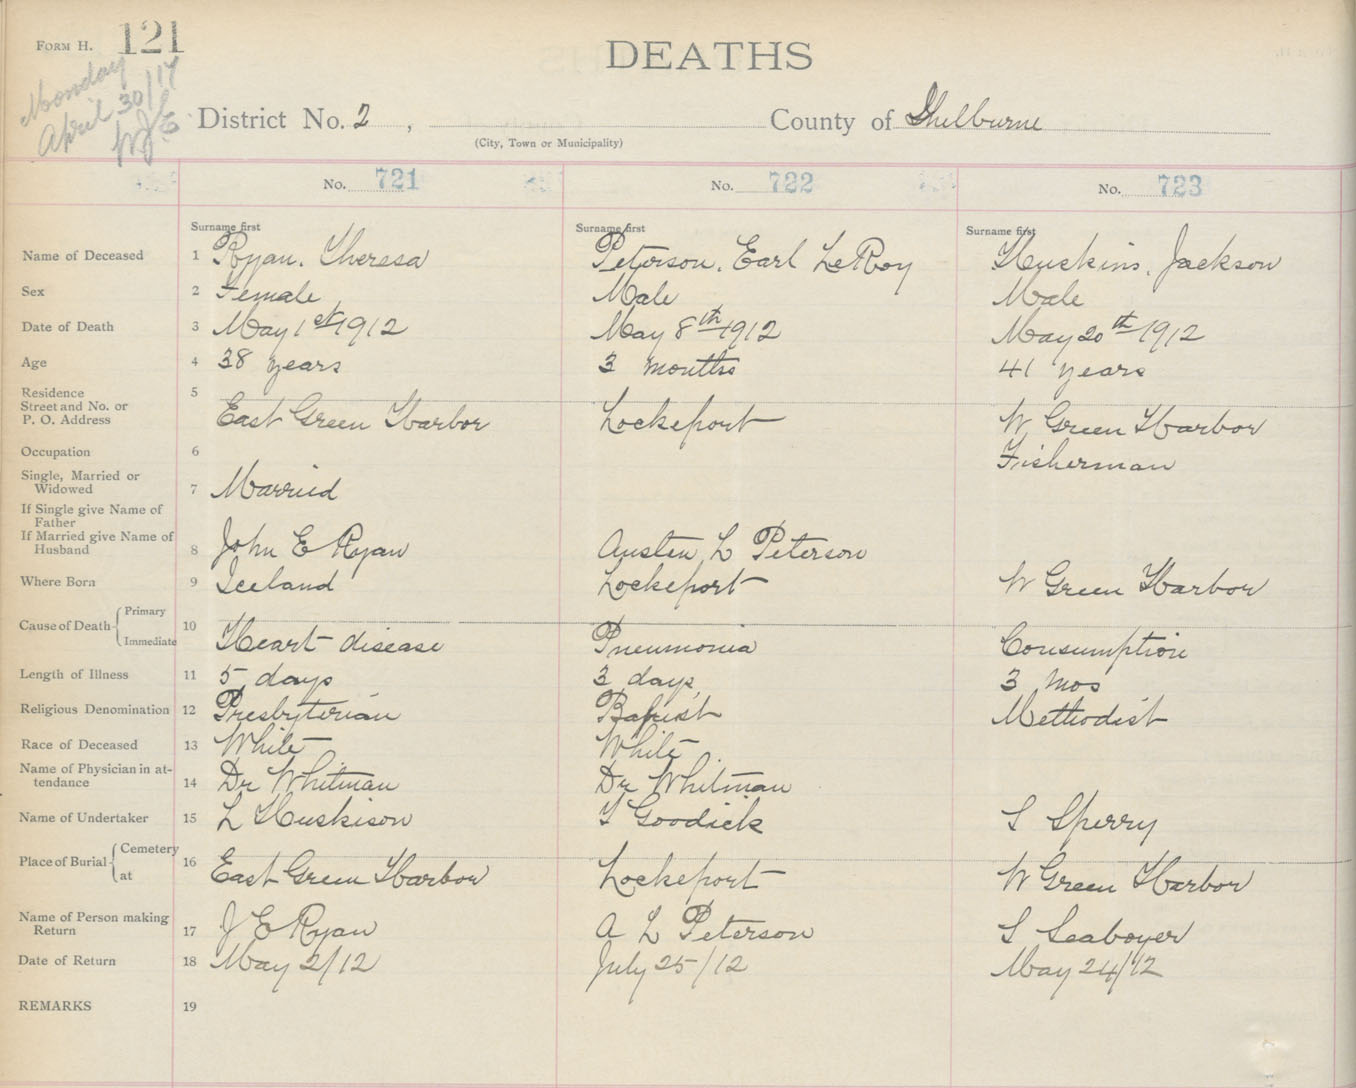 FORM H. 121
DEATHS
Monday
April 30/17
WJE
District No. 2 , County of Shelburne
(City, Town or Municipality)
No. 721 No. 722 No. 723
Surname first Surname first Surname first
Name of Deceased 1 Ryan, Theresa Peterson, Earl LeRoy Huskins, Jackson
Sex 2 Female Male Male
Date of Death 3 May 1st 1912 May 8th 1912 May 20th 1912
Age 4 38 years 3 months 41 years
Residence 5
Street and No. or
P. O. Address East Green Harbor Lockeport W Green Harbor
Occupation 6 Fisherman
Single, Married or
Widowed 7 Married
If Single give Name of
Father
If Married give Name of
Husband 8 John E Ryan Austen L Peterson
Where Born 9 Iceland Lockeport W Green Harbor
Cause of Death Primary 10
Immediate Heart disease Pneumonia Consumption
Length of Illness 11 5 days 3 days 3 mos
Religious Denomination 12 Presbyterian Baptist Methodist
Race of Deceased 13 White White
Name of Physician in at-
tendance 14 Dr Whitman Dr Whitman
Name of Undertaker 15 L Huskison Goodick S Sperry
Place of Burial Cemetery 16
at East Green Harbor Lockeport W Green Harbor
Name of Person making
Return 17 J E Ryan A L Peterson S Seaboyer
Date of Return 18 May 2/12 July 25/12 May 24/12
REMARKS 19